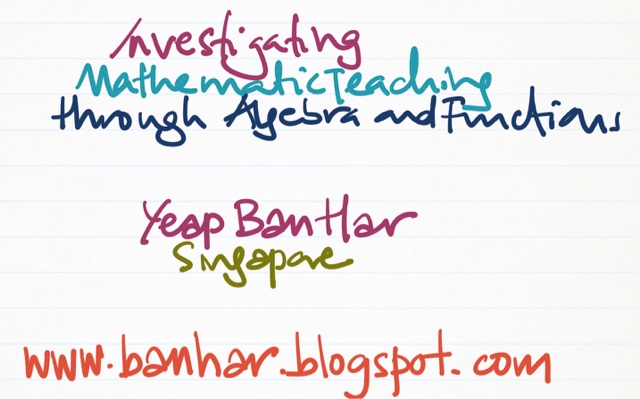 Investigating
Mathematic Teaching
through Algebra and Functions
Yeap Ban Har
Singapore
www.banhar.blogspot.com